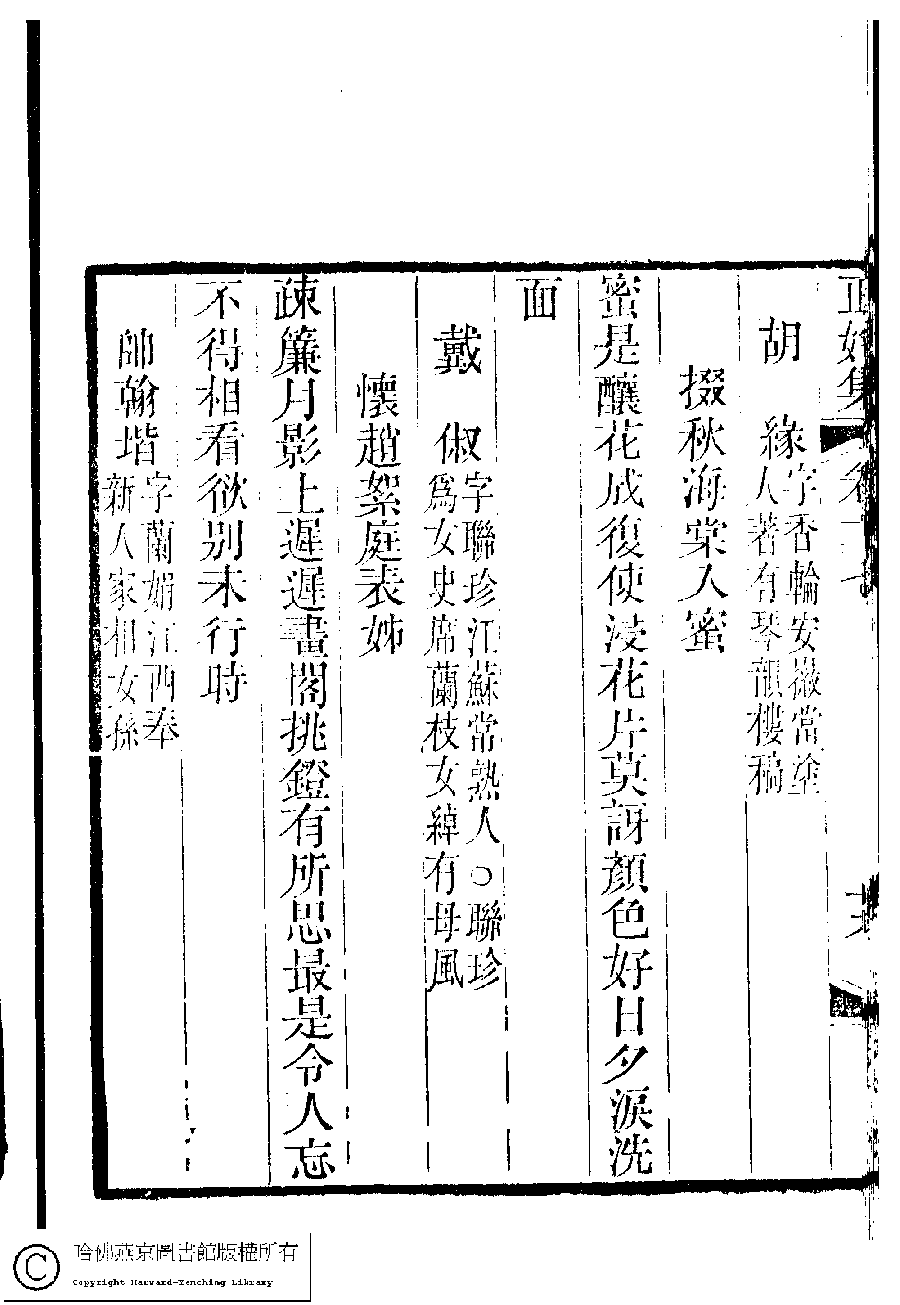 正始集
胡 緣 字香輪安徽當塗
人著有琴韻樓稿
掇秋海棠入蜜
蜜是釀花成復使浸花片莫訝顏色好日夕淚洗
面
戴 俶 字聯珍江蘇常熟人○聯珍
爲女史席蘭枝女綽有母風
懷趙絮庭表姊
疎簾月影上遲遲畫閣挑鐙有所思最是令人忘
不得相看欲別未行時
帥翰堦 字蘭娟江西奉
新人家相女孫
© 哈佛燕京圖書館版權所有
Copyright Harvard-Yenching Library